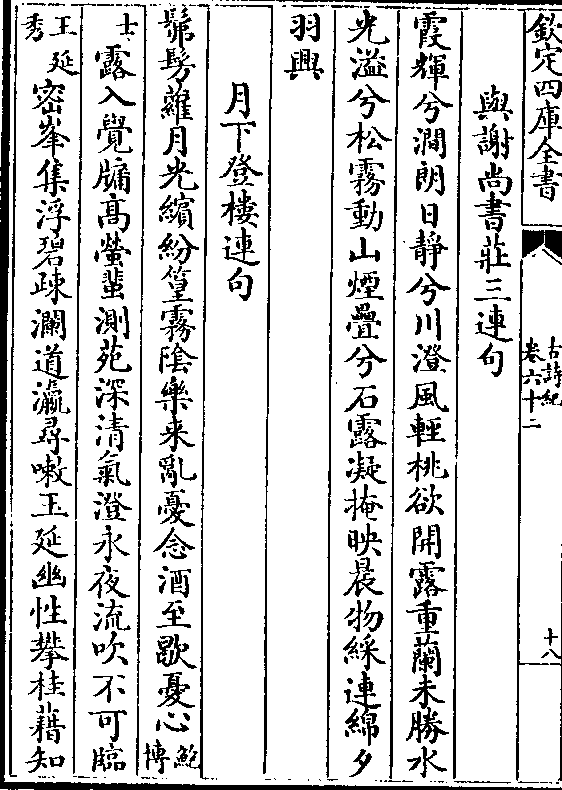 欽定四庫全書
古詩紀
卷六十二
十八
與謝尚書莊三連句
霞輝兮澗朗日靜兮川澄風輕桃欲開露重蘭未勝水
光溢兮松霧動山煙疊兮石露凝掩映晨物綵連綿夕
羽興
月下登樓連句
髴髣蘿月光繽紛篁霧陰樂来亂憂念酒至歇憂心鮑博
士露入覺牖髙螢蜚測苑深清氣澄永夜流吹不可臨
王延秀密峯集浮碧疎瀾道瀛尋嗽玉延幽性攀桂藉知